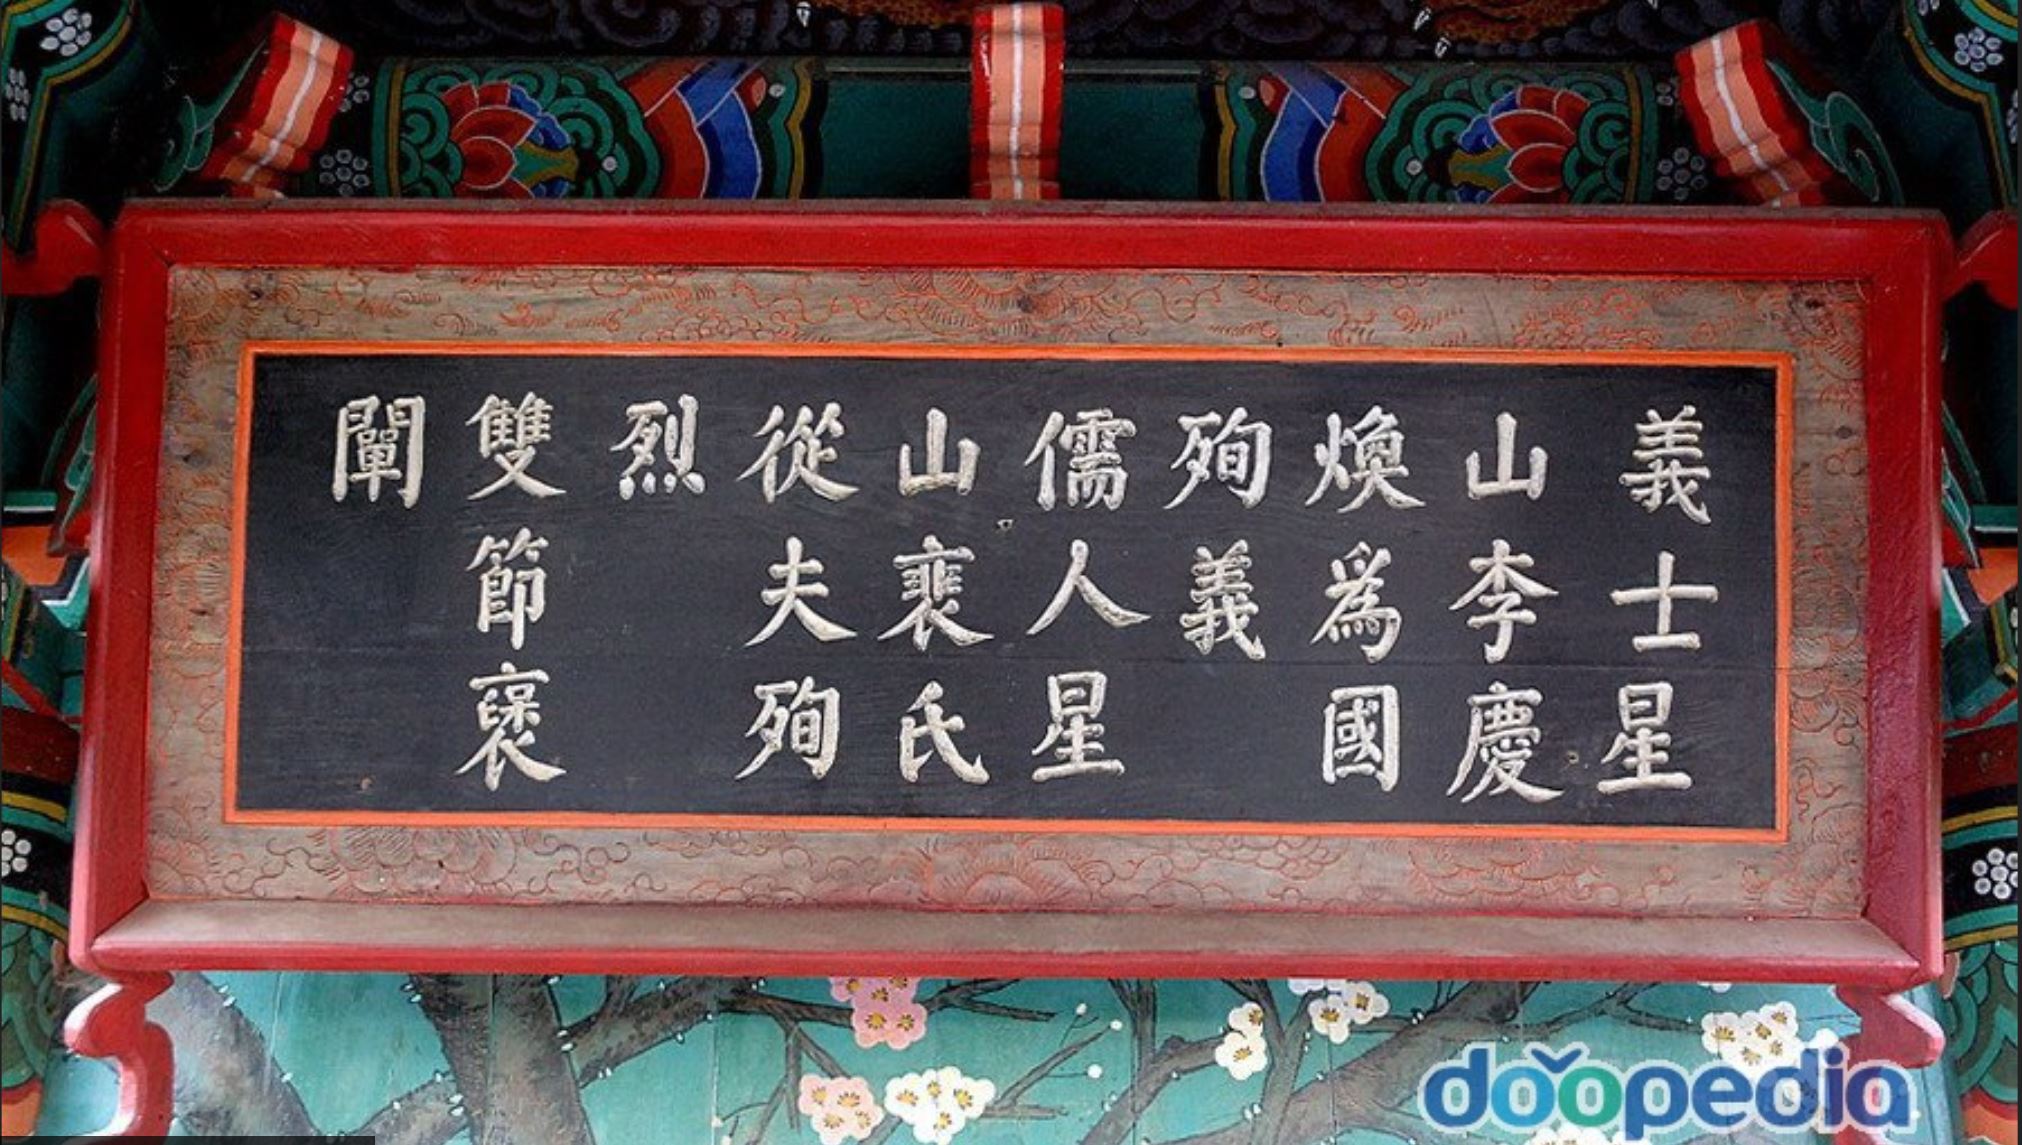 義士星
山李慶
煥爲國
殉義
儒人星
山裵氏
從夫殉
烈
雙節褒
闡
doopedia